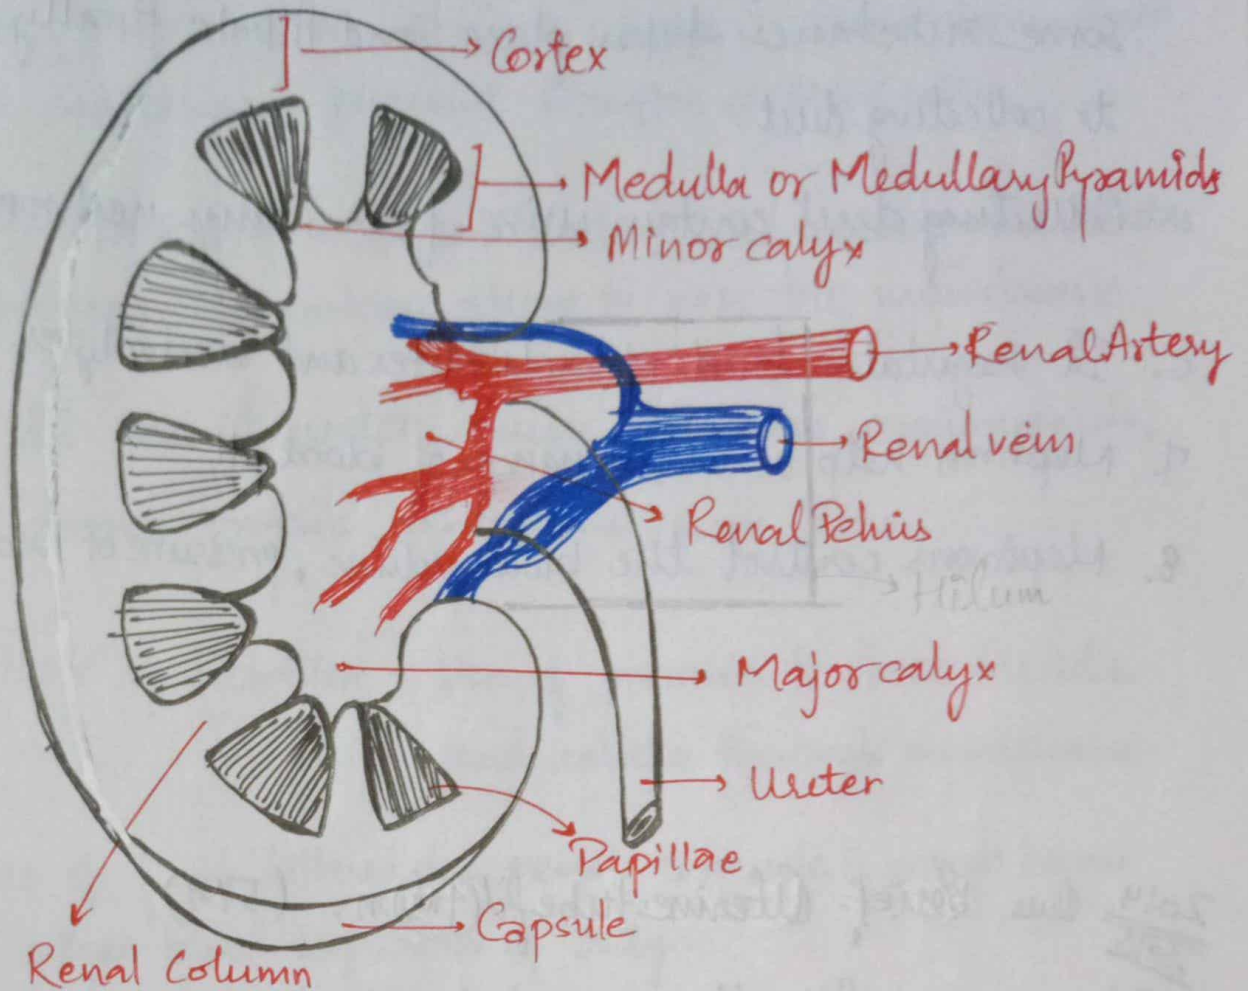 Cortex
Medulla or Medullary Pyramids
Minor calyx
Renal Artery
Renal vein
Renal Pelvis
Hilum
Major calyx
Ureter
Papillae
Capsule
Renal Column